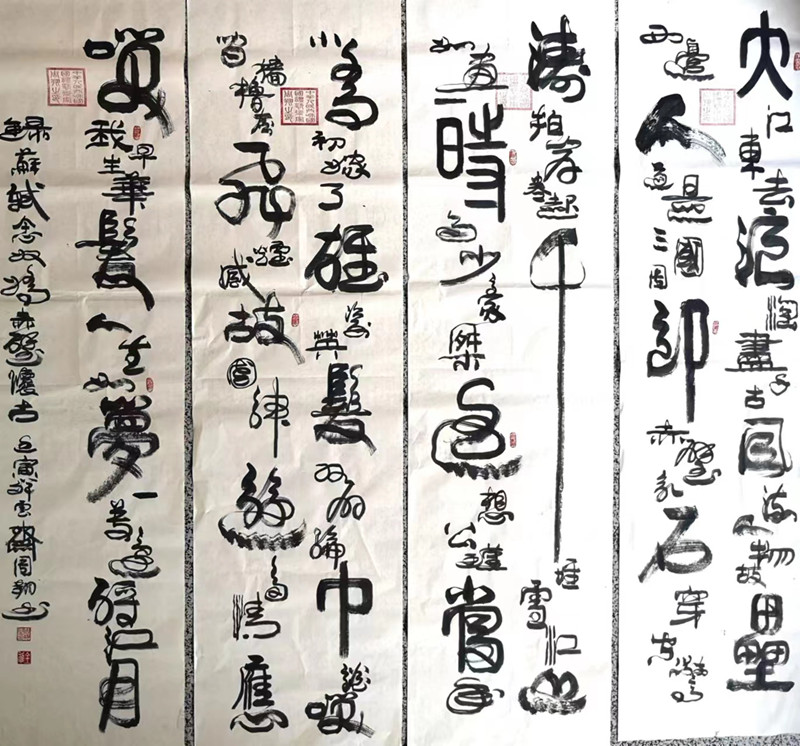 大江東去浪淘盡千古風流人物故壘
西邊人道是三國周郎赤壁乱石穿空驚
濤拍岸卷起千堆雪江山
如畫一時多少豪傑遙想公瑾當年
小喬初嫁了雄姿英髮羽扇綸巾談咲
間檣櫓灰飛煙滅故國神遊多情應
咲我早生華髮人生如夢一尊還酹江月
錄蘇軾念奴嬌赤壁懷古 壬寅 齋周翔书